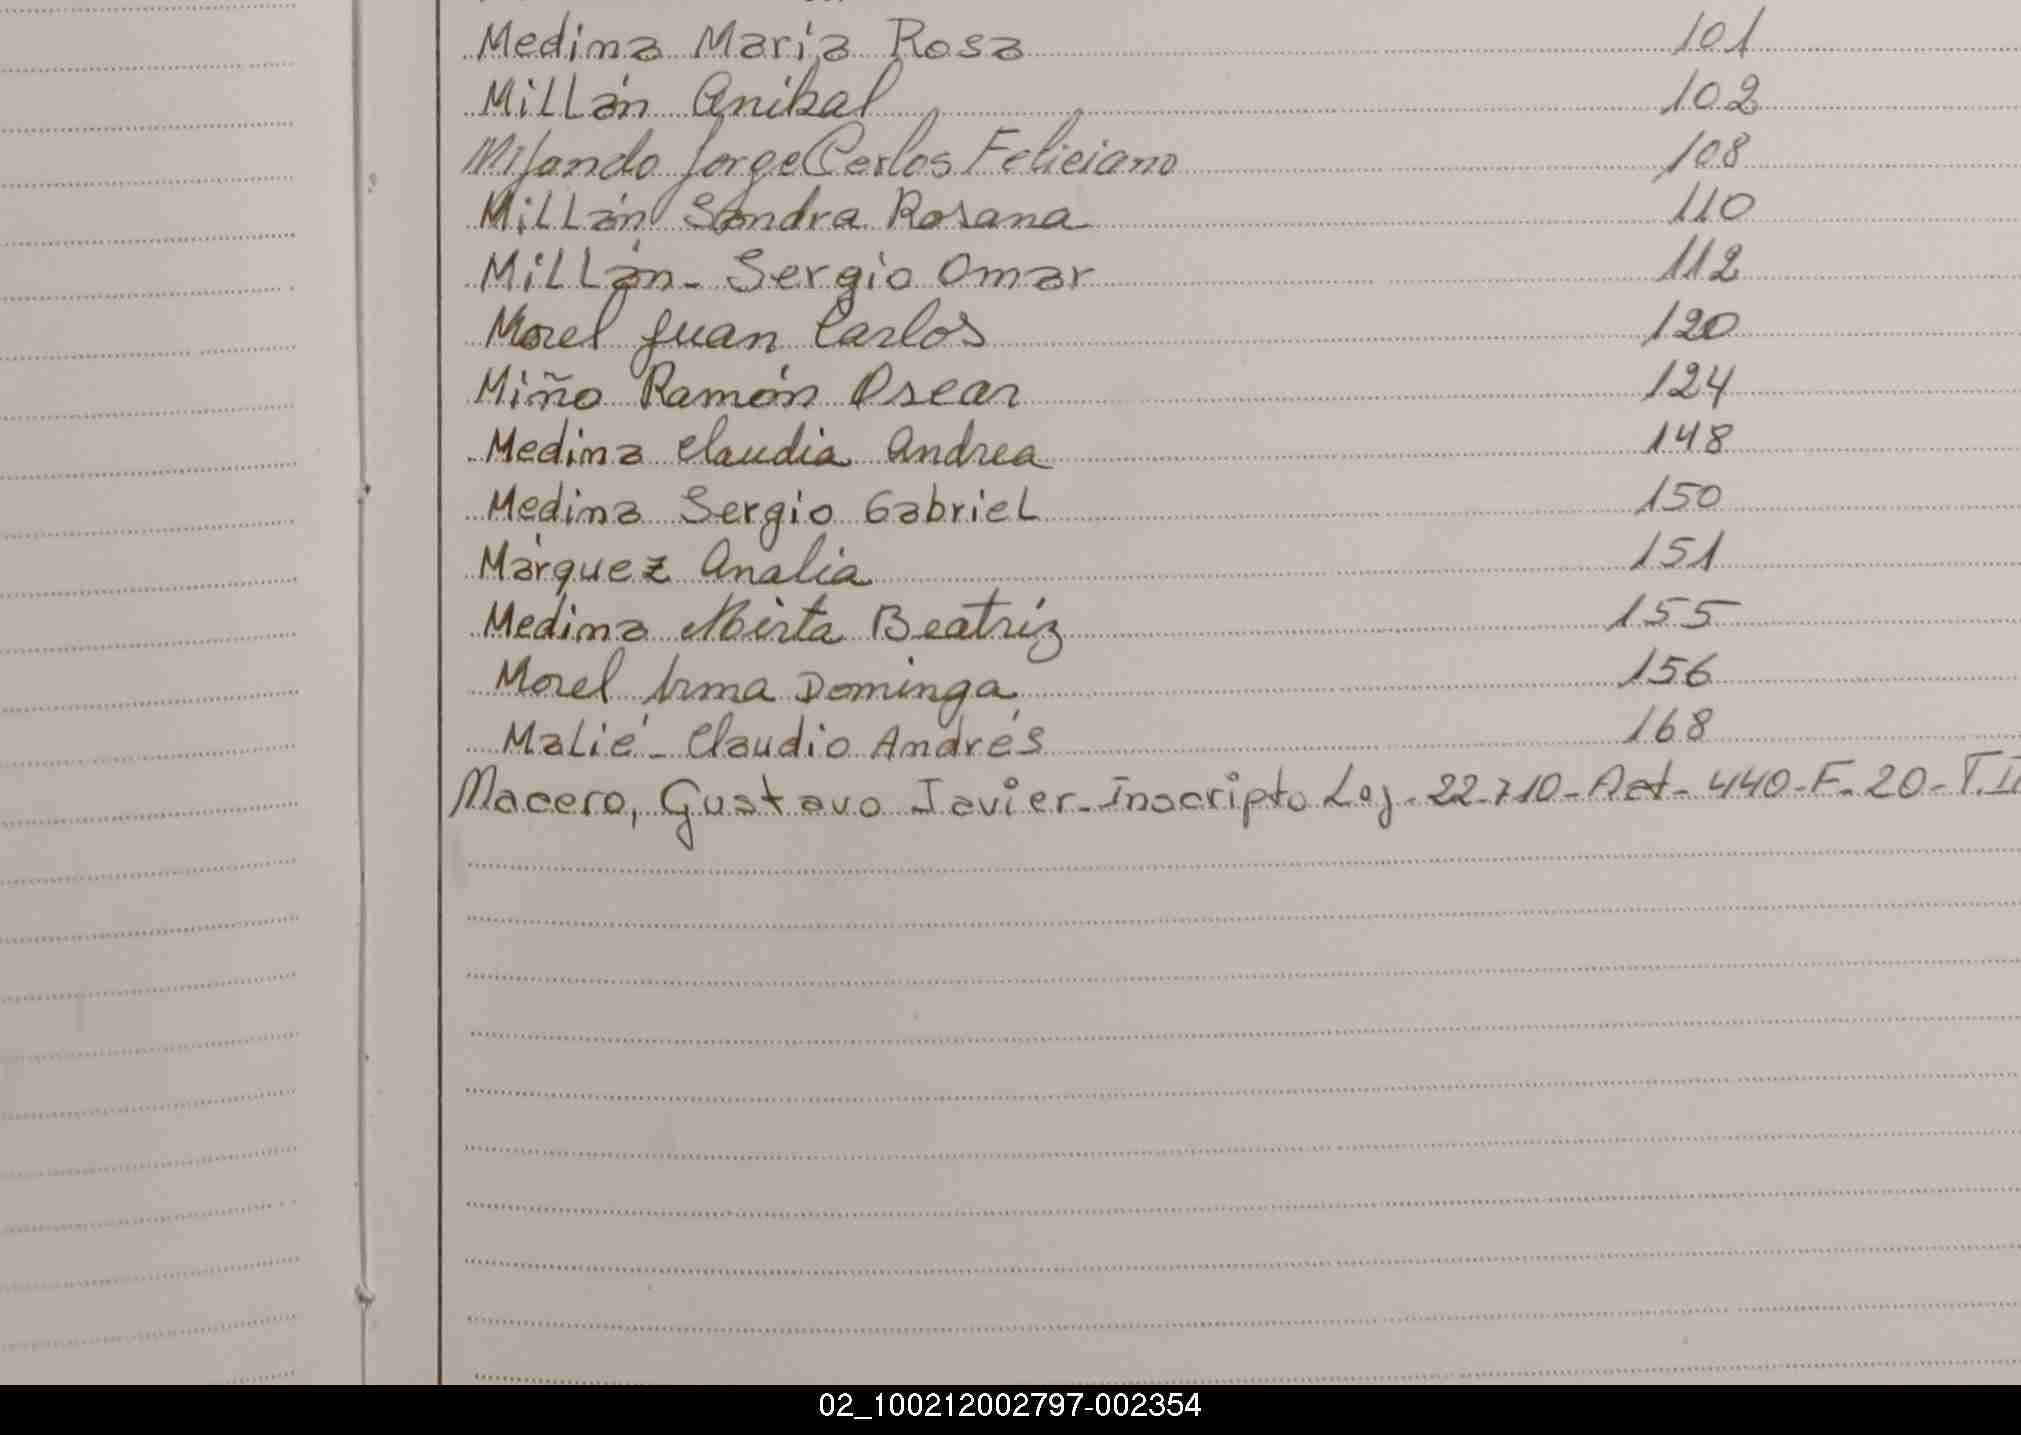 Medina María Rosa 101
Millán Anibal 102
Mifando Jorge Carlos Feliciano 108
Millán Sandra Rosana 110
Millán - Sergio Omar 112
Morel Juan Carlos 120
Miño Ramón Oscar 124
Medina Claudia Andrea 148
Medina Sergio Gabriel 150
Márquez Analia 151
Medina Mirta Beatríz 155
Morel Irma Dominga 156
Malié - Claudio Andrés 168
Macero, Gustavo Javier - inscripto Leg. 22.710 - Act - 440 - F. 20 - T. II
02_100212002797-002354